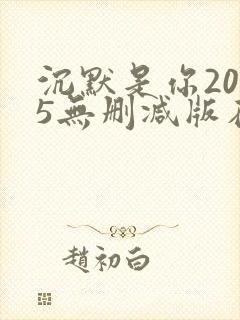 沉默是你20
5無删减版
趙初白